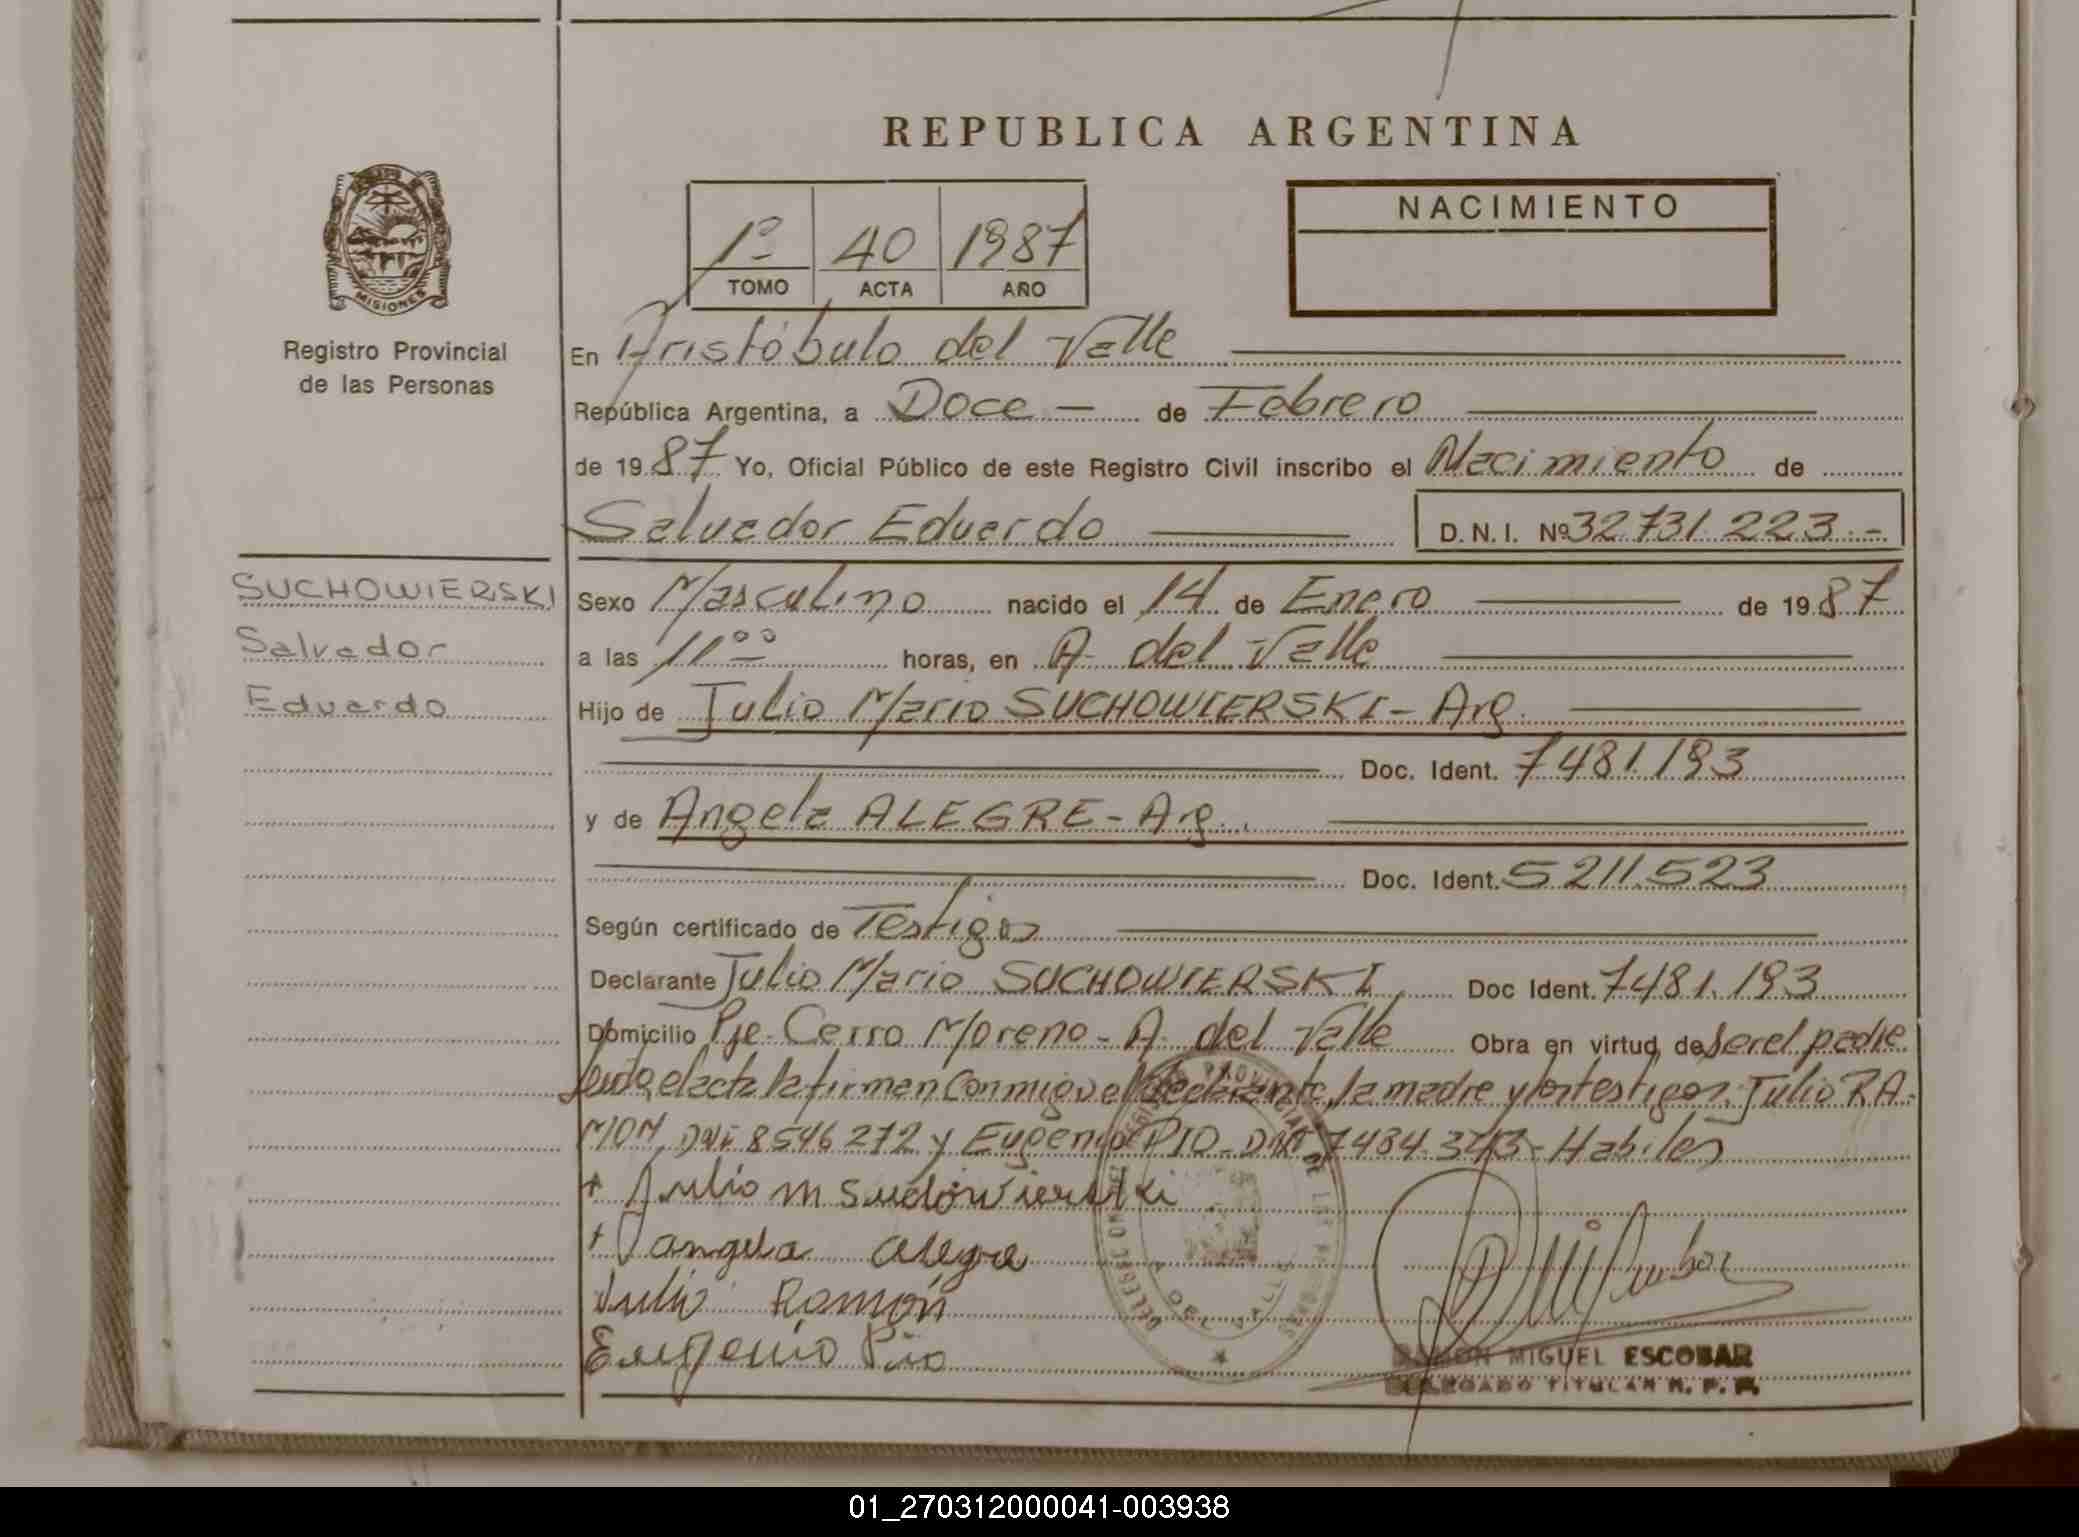 REPUBLICA ARGENTINA
MISIONES
Registro Provincial
de las Personas
1º 40 1987
TOMO ACTA AÑO
NACIMIENTO
En Aristóbulo del Valle
República Argentina, a Doce de Febrero
de 1987 Yo, Oficial Público de este Registro Civil inscribo el Nacimiento de
Salvador Eduardo D.N.I. Nº 32731.223.-
SUCHOWIERSKI
Salvador
Eduardo
Sexo Masculino nacido el 14 de Enero de 1987
a las 11ºº horas, en A. del Valle
Hijo de Julio Mario SUCHOWIERSKI - Arg.
Doc. Ident. 7481.193
y de Angela ALEGRE - Arg.
Doc. Ident. 5211.523
Según certificado de Testigos
Declarante Julio Mario SUCHOWIERSKI Doc Ident. 7481.193
Domicilio Pje. Cerro Moreno - A. del Valle Obra en virtud de ser el padre
leida el acta la firman conmigo el declarante, la madre y los testigos: Julio RA-
MON, DNI 8546272 y Eugenio PIO - DNI 7484.343 - Habiles
+ Julio M Suchowierski
+ angela alegre
Julio Ramón
Eugenio Pio
RAMON MIGUEL ESCOBAR
DELEGADO TITULAR R. P. P.
01_270312000041-003938